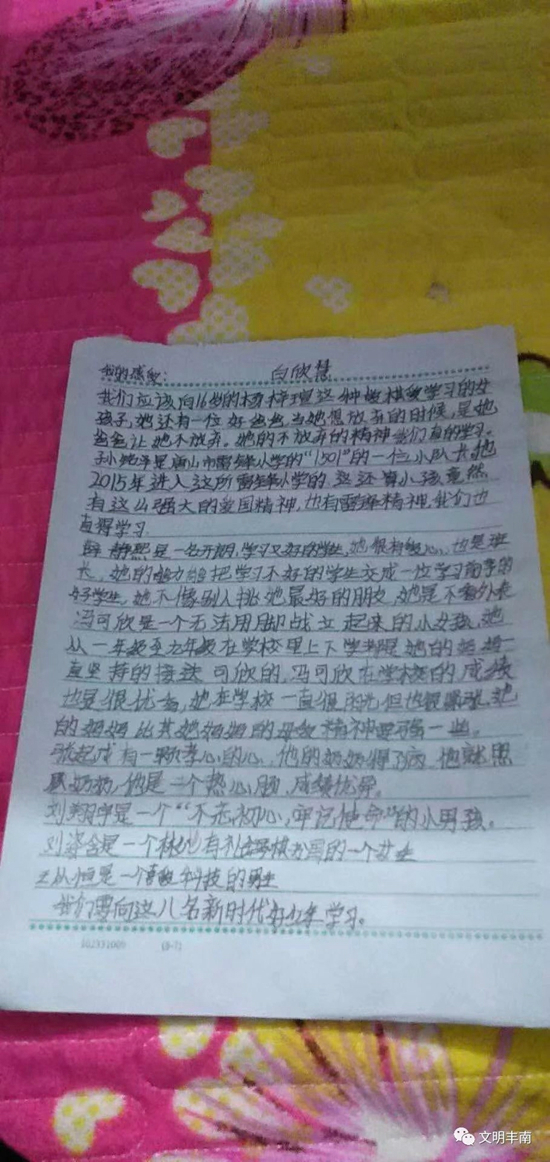 我的感受： 白欣慧
我们应该向16岁的杨梓理这种学习的女
孩子，她还有一位好爸爸，当她想放弃的时候，是她
爸爸让她不放弃。她的不放弃的精神我们真的学习。
孙纯宇是唐山市雷锋小学的“1501”的一位小队长，他
2015年进入这所雷锋小学的，这还算小孩竟然
有这么强大的爱国精神，也有雷锋精神，我们也
值得学习
静熙是一名开朗，学习又好的学生，她很有爱心，也是班
长，她的能力能把学习不好的学生变成一位学习的
好学生，她不像别人挑她最好的朋友，她是不看外表
冯可欣是一个无法用脚战立起来的小女孩，她
从一年级至九年级在学校里上下学都是她的一
直坚持的接送可欣的，冯可欣在学校的成绩
也是很优秀，她在学校一直很但也很，她
的妈妈比其她妈妈的母爱精神要强一些。
张起成有一颗孝心的心，他的奶奶得了病，他就照
顾奶奶，他是一个热心肠，成绩优异。
刘翔宇是一个“不忘初心，牢记使命”的小男孩。
刘姿含是一个有礼的一个女生
王从恒是一个科技的男生
我们要向这八名新时代好少年学习。
102331009 (8-7)
文明丰南